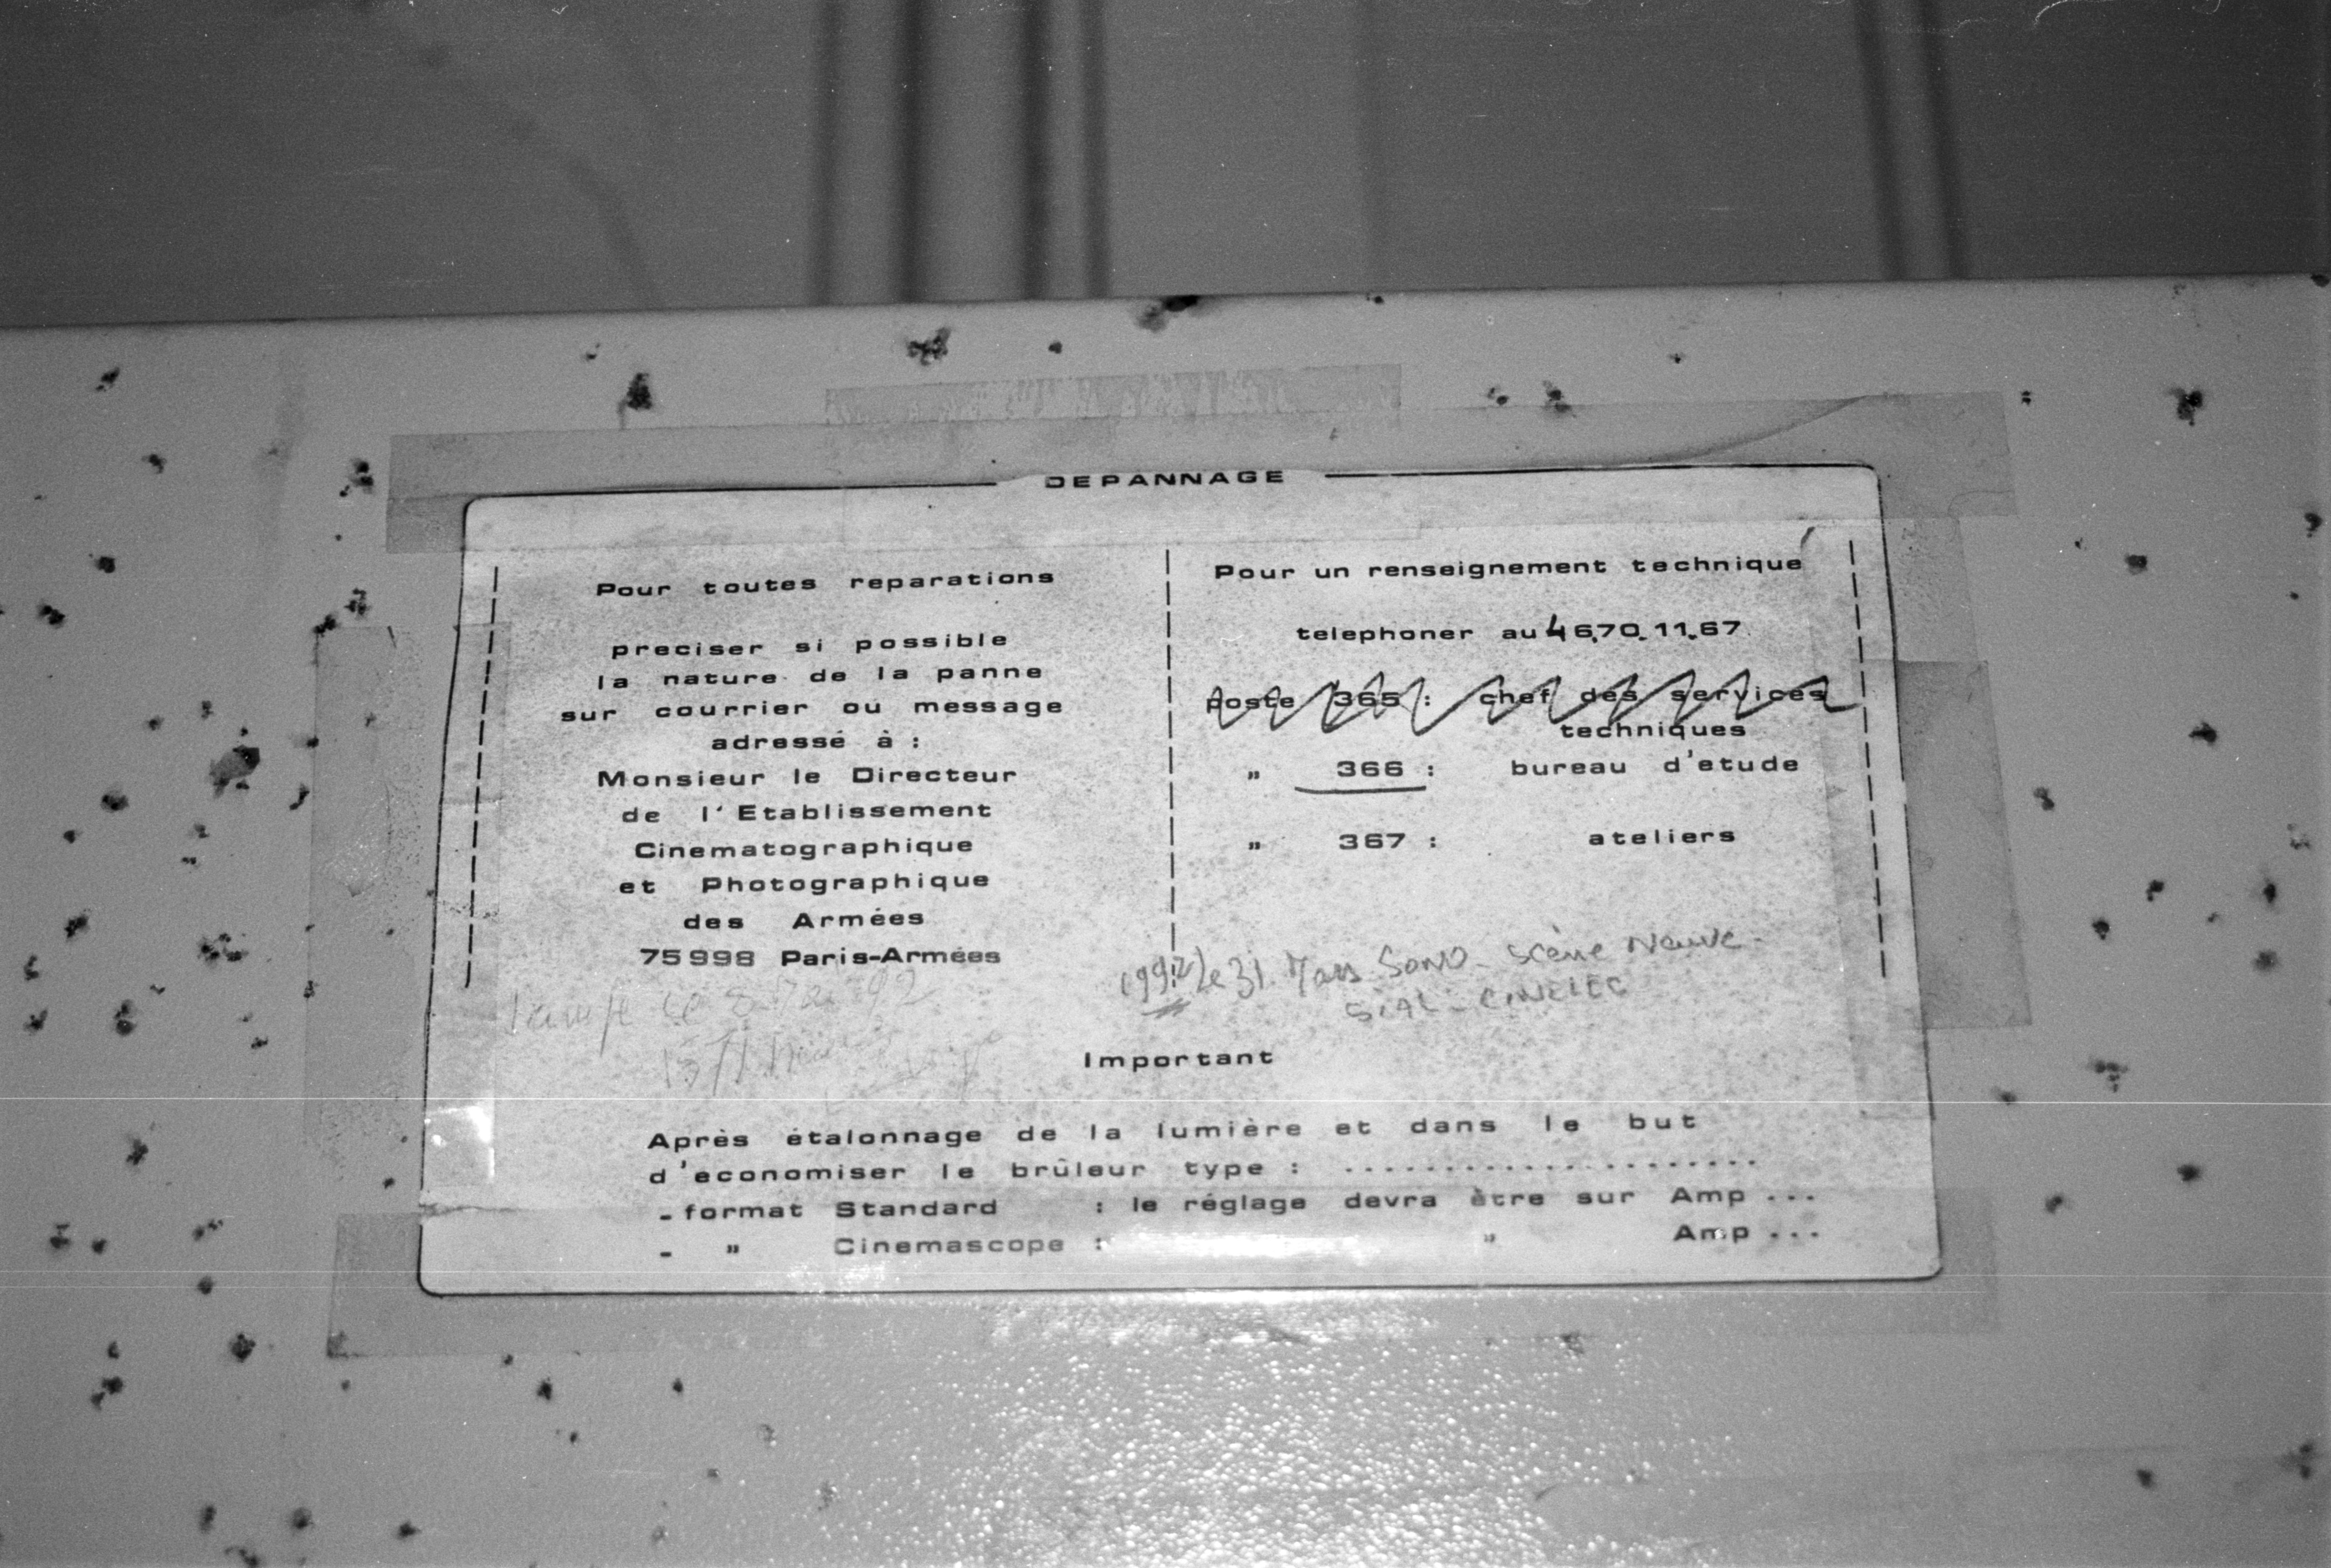 DEPANNAGE
Pour toutes reparations
preciser si possible
la nature de la panne
sur courrier ou message
adressé à :
Monsieur le Directeur
de l'Etablissement
Cinematographique
et Photographique
des Armées
75998 Paris-Armées
Pour un renseignement technique
telephoner au 4670.11.67.
poste 365 : chef des services
techniques
" 366 : bureau d'etude
" 367 : ateliers
1992 le 31 Mars Sono - scène Neuve -
SIAL - CINELEC
Important
Après étalonnage de la lumière et dans le but
d'economiser le brûleur type : .....................
- format Standard : le réglage devra être sur Amp ...
- " Cinemascope : " Amp ...